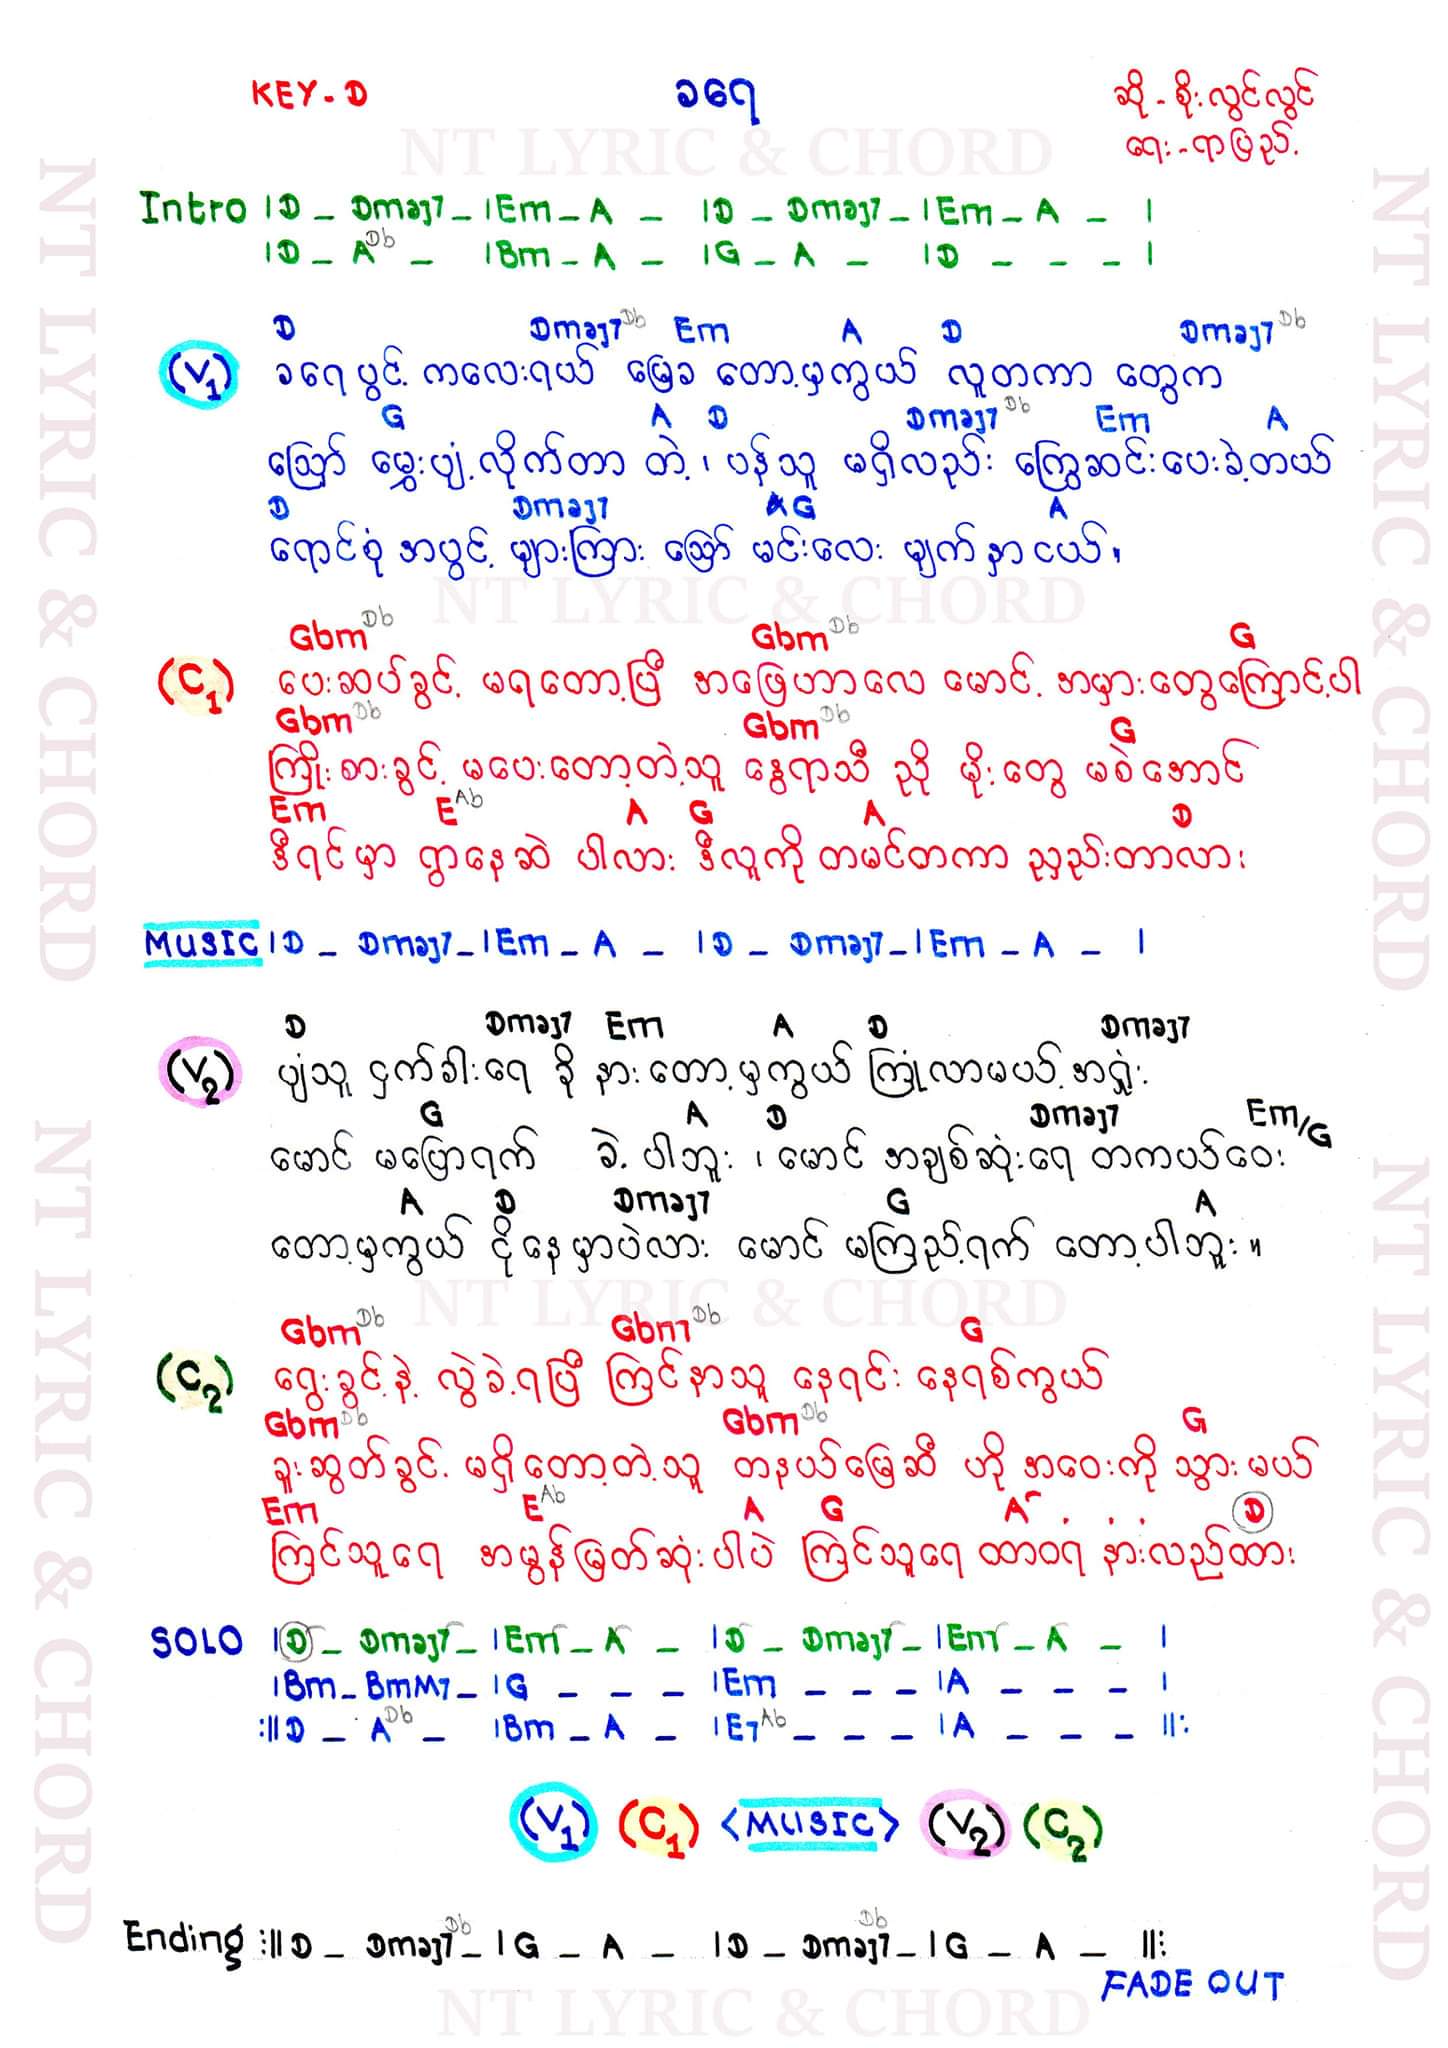 KEY-D ခရေ ဆို - စိုးလွင်လွင်
ရေး - ရာပြည့်
NT LYRIC & CHORD
Intro |D _ Dmaj7 _ |Em _ A _ |D _ Dmaj7 _ |Em _ A _ |
|D _ A Db _ |Bm _ A _ |G _ A _ |D _ _ _ |
D Dmaj7 Db Em A D Dmaj7 Db
(V1) ခရေပွင့် ကလေးရယ် မြေခ တော့မှကွယ် လူတကာ တွေက
G A D Dmaj7 Db Em A
သြော် မွှေးပျံ့လိုက်တာ တဲ့၊ ပန်သူ မရှိလည်း ကြွေဆင်းပေးခဲ့တယ်
D Dmaj7 G A
ရောင်စုံ အပွင့် များကြား သြော် မင်းလေး မျက်နှာငယ်။
NT LYRIC & CHORD
Gbm Db Gbm Db G
(C1) ပေးဆပ်ခွင့် မရတော့ပြီ အဖြေဟာလေ မောင့် အမှားတွေကြောင့်ပါ
Gbm Db Gbm Db G
ကြိုးစားခွင့် မပေးတော့တဲ့သူ နွေရာသီ ညို မိုးတွေ မစဲအောင်
Em E Ab A G A D
ဒီရင်မှာ ရွာနေဆဲ ပါလား ဒီလူကို တမင်တကာ ညှဉ်းတာလား
MUSIC |D _ Dmaj7 _ |Em _ A _ |D _ Dmaj7 _ |Em _ A _ |
D Dmaj7 Em A D Dmaj7
(V2) ပျံသူ ငှက်ခါးရေ ခို နားတော့မှကွယ် ကြုံလာမယ့် အရှုံး
G A D Dmaj7 Em/G
မောင် မပြောရက် ခဲ့ပါဘူး၊ မောင် အချစ်ဆုံးရေ တကယ်ဝေး
A D Dmaj7 G A
တော့မှကွယ် ငိုနေမှာပဲလား မောင် မကြည့်ရက် တော့ပါဘူး။
NT LYRIC & CHORD
Gbm Db Gbm Db G
(C2) ရွေးခွင့်နဲ့ လွဲခဲ့ရပြီ ကြင်နာသူ နေရင်း နေရစ်ကွယ်
Gbm Db Gbm Db G
ခူးဆွတ်ခွင့် မရှိတော့တဲ့သူ တနယ်မြေဆီ ဟို အဝေးကို သွားမယ်
Em E Ab A G A . . . D
ကြင်သူရေ အမွန်မြတ်ဆုံးပါပဲ ကြင်သူရေ ထာဝရ နားလည်ထား
SOLO |D _ Dmaj7 _ |Em _ A _ |D _ Dmaj7 _ |Em _ A _ |
|Bm _ BmM7 _ |G _ _ _ |Em _ _ _ |A _ _ _ |
:||D _ A Db _ |Bm _ A _ |E7 Ab _ _ _ |A _ _ _ ||:
(V1) (C1) <MUSIC> (V2) (C2)
Ending :||D _ Dmaj7 Db _ |G _ A _ |D _ Dmaj7 Db _ |G _ A _ ||:
FADE OUT
NT LYRIC & CHORD
NT LYRIC & CHORD
NT LYRIC & CHORD
NT LYRIC & CHORD
NT LYRIC & CHORD